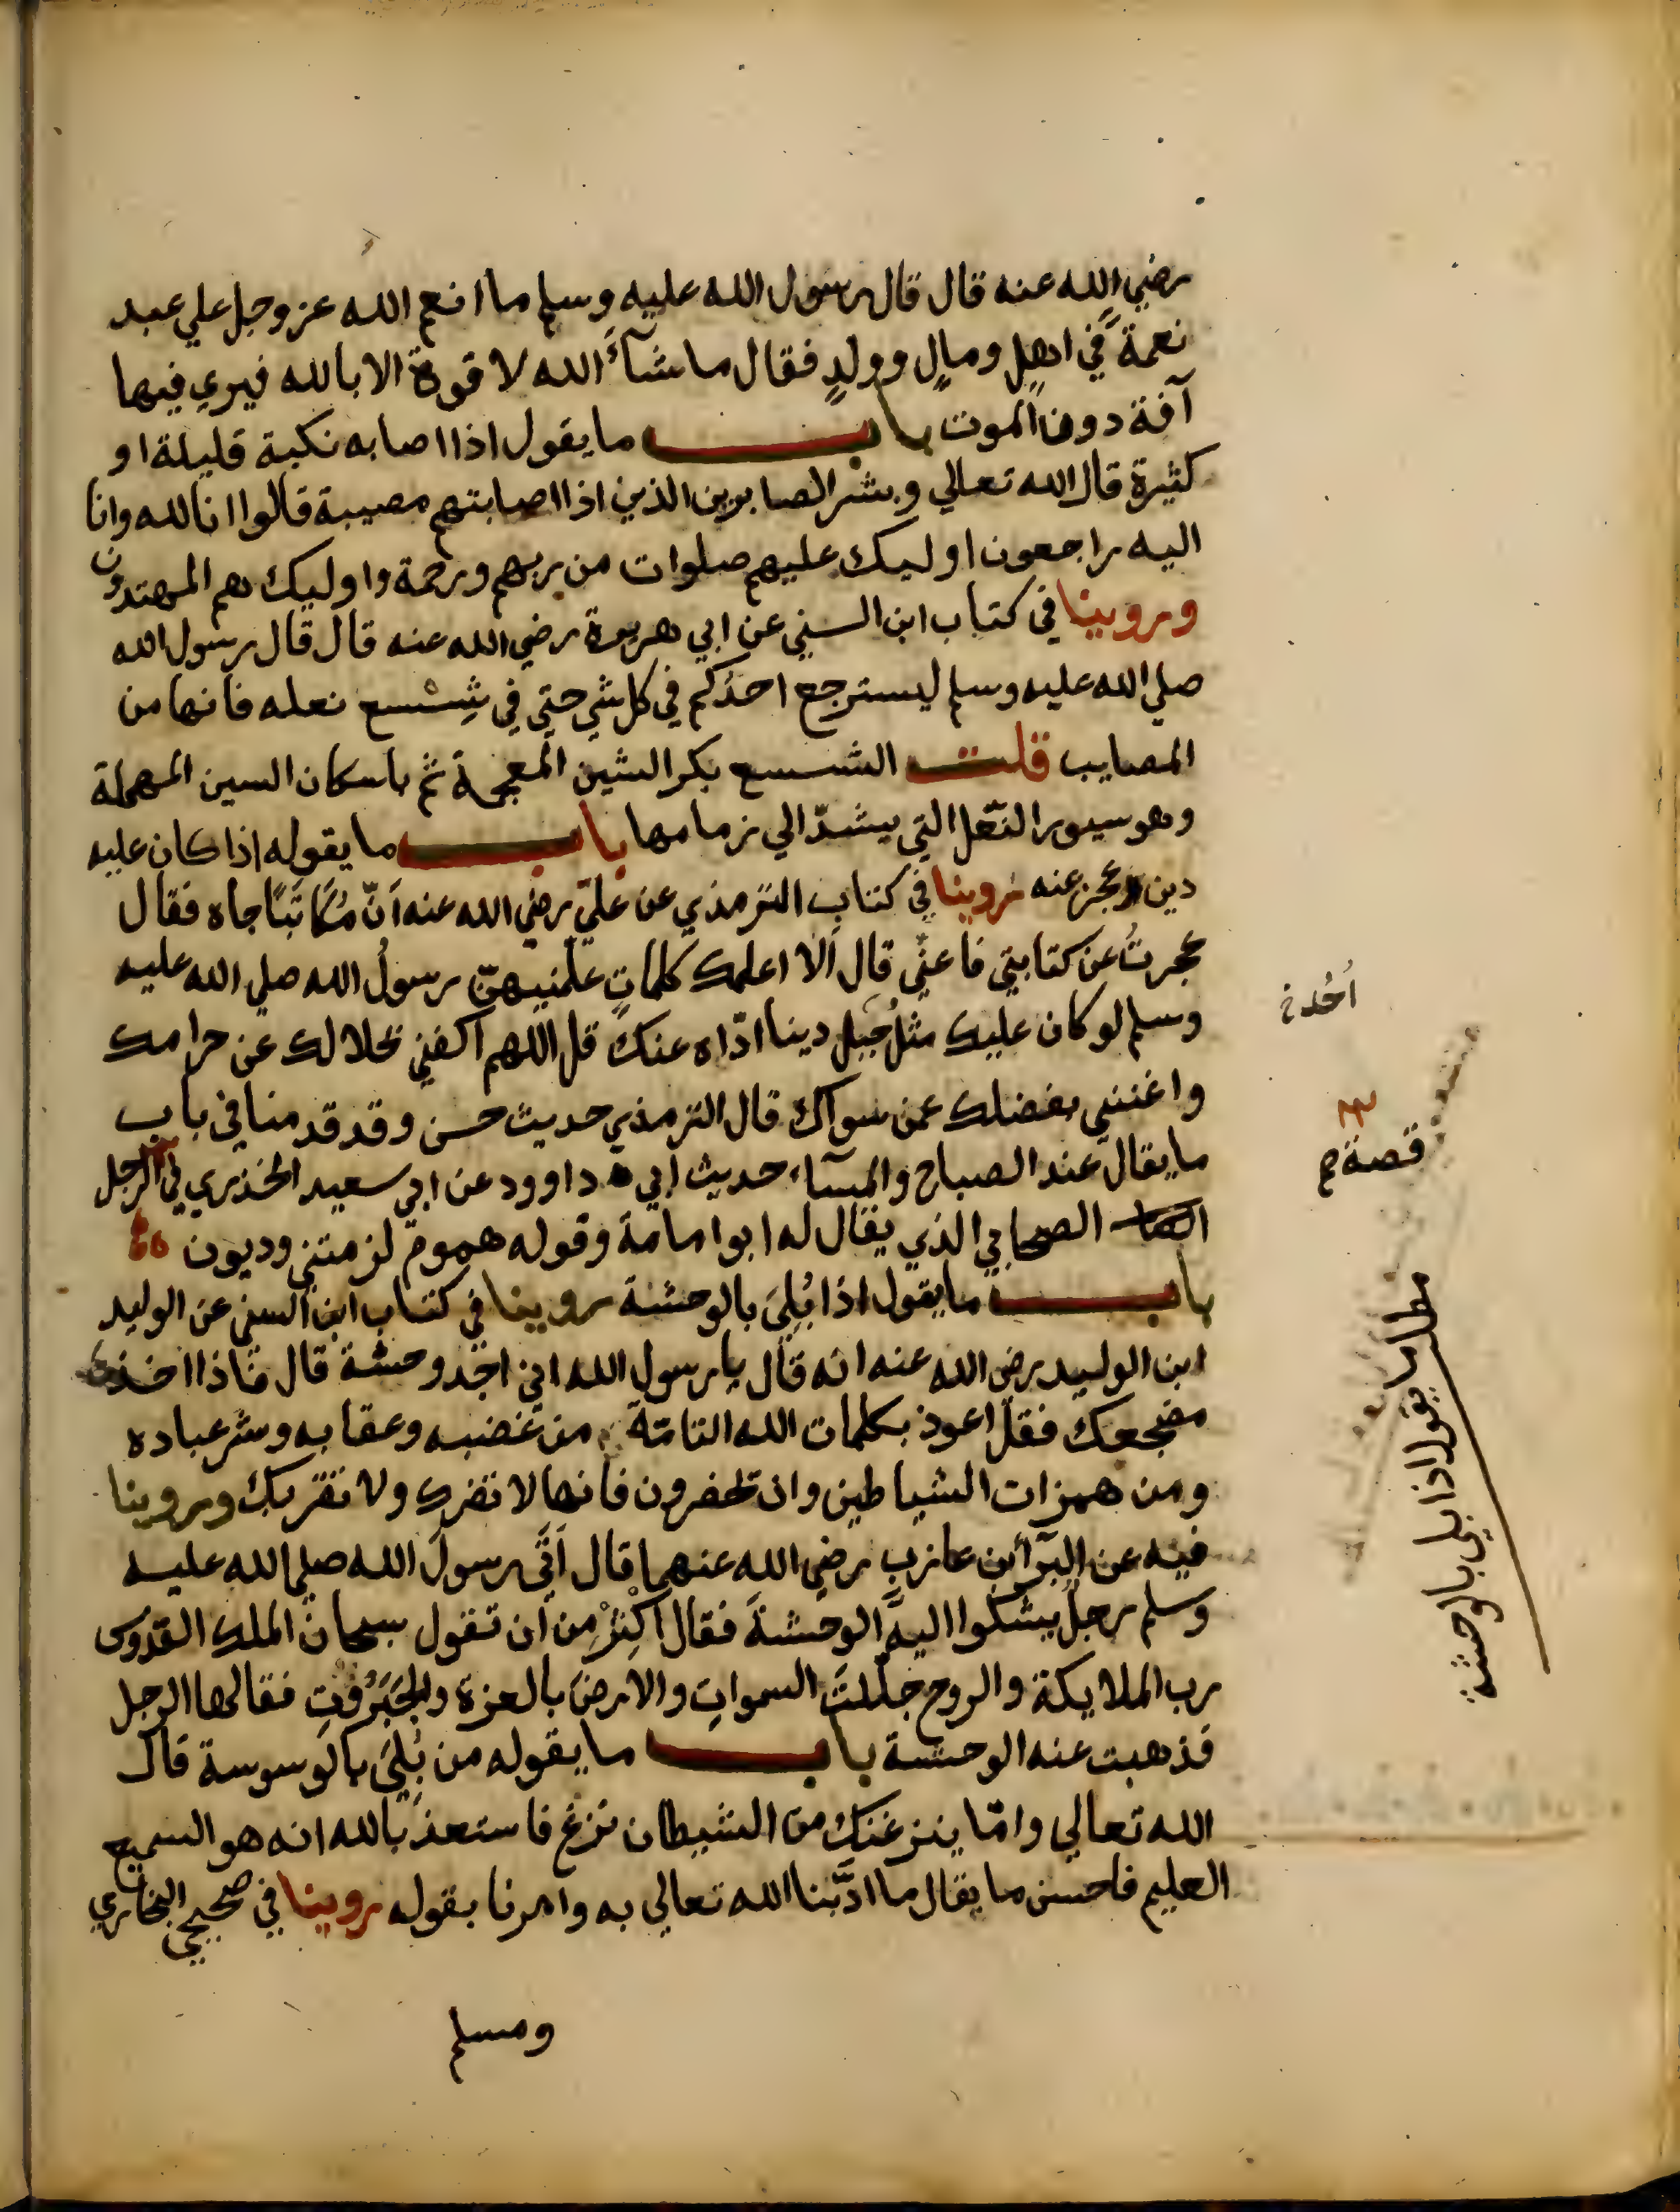 رضي الله عنه قال قال رسول الله عليه وسلم ما انعم الله عز وجل علي عبد
نعمةً في اهلٍ ومالٍ وولدٍ فقال ما شآءَ الله لا قوة الا بالله فيري فيها
آفة دون الموت باب ما يقول اذا اصابه نكبة قليلة او
كثيرة قال الله تعالي وبشر الصابرين الذين اذا اصابتهم مصيبة قالوا انا لله وانا
اليه راجعون اوليك عليهم صلوات من ربهم ورحمة واوليك هم المهتدون
وروينا في كتاب ابن السني عن ابي هريرة رضي الله عنه قال قال رسول الله
صلي الله عليه وسلم ليسترجع احدُكم في كل شي حتي في شِسْسع نعله فانها من
المصايب قلت الشسسع بكر الشين المعجمة ثم باسكان السين المهملة
وهو سيور النّعل التي يشدّ الي زمامها باب ما يقوله اذا كان عليه
دين وعجز عنه روينا في كتاب الترمذي عن عليّ رضي الله عنه اَنّ مُكَاتَبًا جاه فقال
عجزتُ عن كتابتي فاعنِّي قال اَلا اعلمك كلماتٍ علّمنيهنّ رسولُ الله صلي الله عليه
وسلم لو كان عليك مثلُ جَبل دينا ادّاه عنك قل اللهم اكفني بحلالك عن حرامك
واغنني بفضلك عمن سواك قال الترمذي حديث حسن وقد قدمنا في باب
ما يقال عند الصباح والمسآء حديث ابي داوود عن ابي سعيد الخذري في الرجل
الصحابي الذي يقال له ابوا مامة وقوله هموم لزمتني وديون
باب ما يقول اذا بُلِيَ بالوحشة روينا في كتاب ابن السني عن الوليد
ابن الوليد رضي الله عنه انه قال يا رسول الله اني اجد وحشة قال فاذا اخذت
مضجعك فقل اعوذ بكلمات الله التامّة من غضبه وعقابه وشر عباده
ومن همزات الشياطين وان يحضرون فانها لا تضرك ولا تقربك وروينا
فيه عن البرآ بن عازب رضي الله عنهما قال اَتَي رسولَ الله صلي الله عليه
وسلم رجلٌ يشكوا اليه الوحشةَ فقال اَكْثِرْ مِن اَن تقول سبحانَ الملك القدوس
رب الملايكة والروح جلّلتَ السمواتِ والارضَ بالعزة والجَبَرُوتِ فقالها الرجل
فذهبت عنه الوحشة باب ما يقوله من بُلِيَ بالوسوسة قال
الله تعالي وامّا ينزغنك من الشيطان نزغ فاستعذ بالله انه هو السميع
العليم فاحسن ما يقال ما ادَّبنا الله تعالي به وامرنا بقوله روينا في صحيحي البخاري
ومسلم
اُحُد خ
قصة
مطلب ما يقول اذا بلي بالوحشة